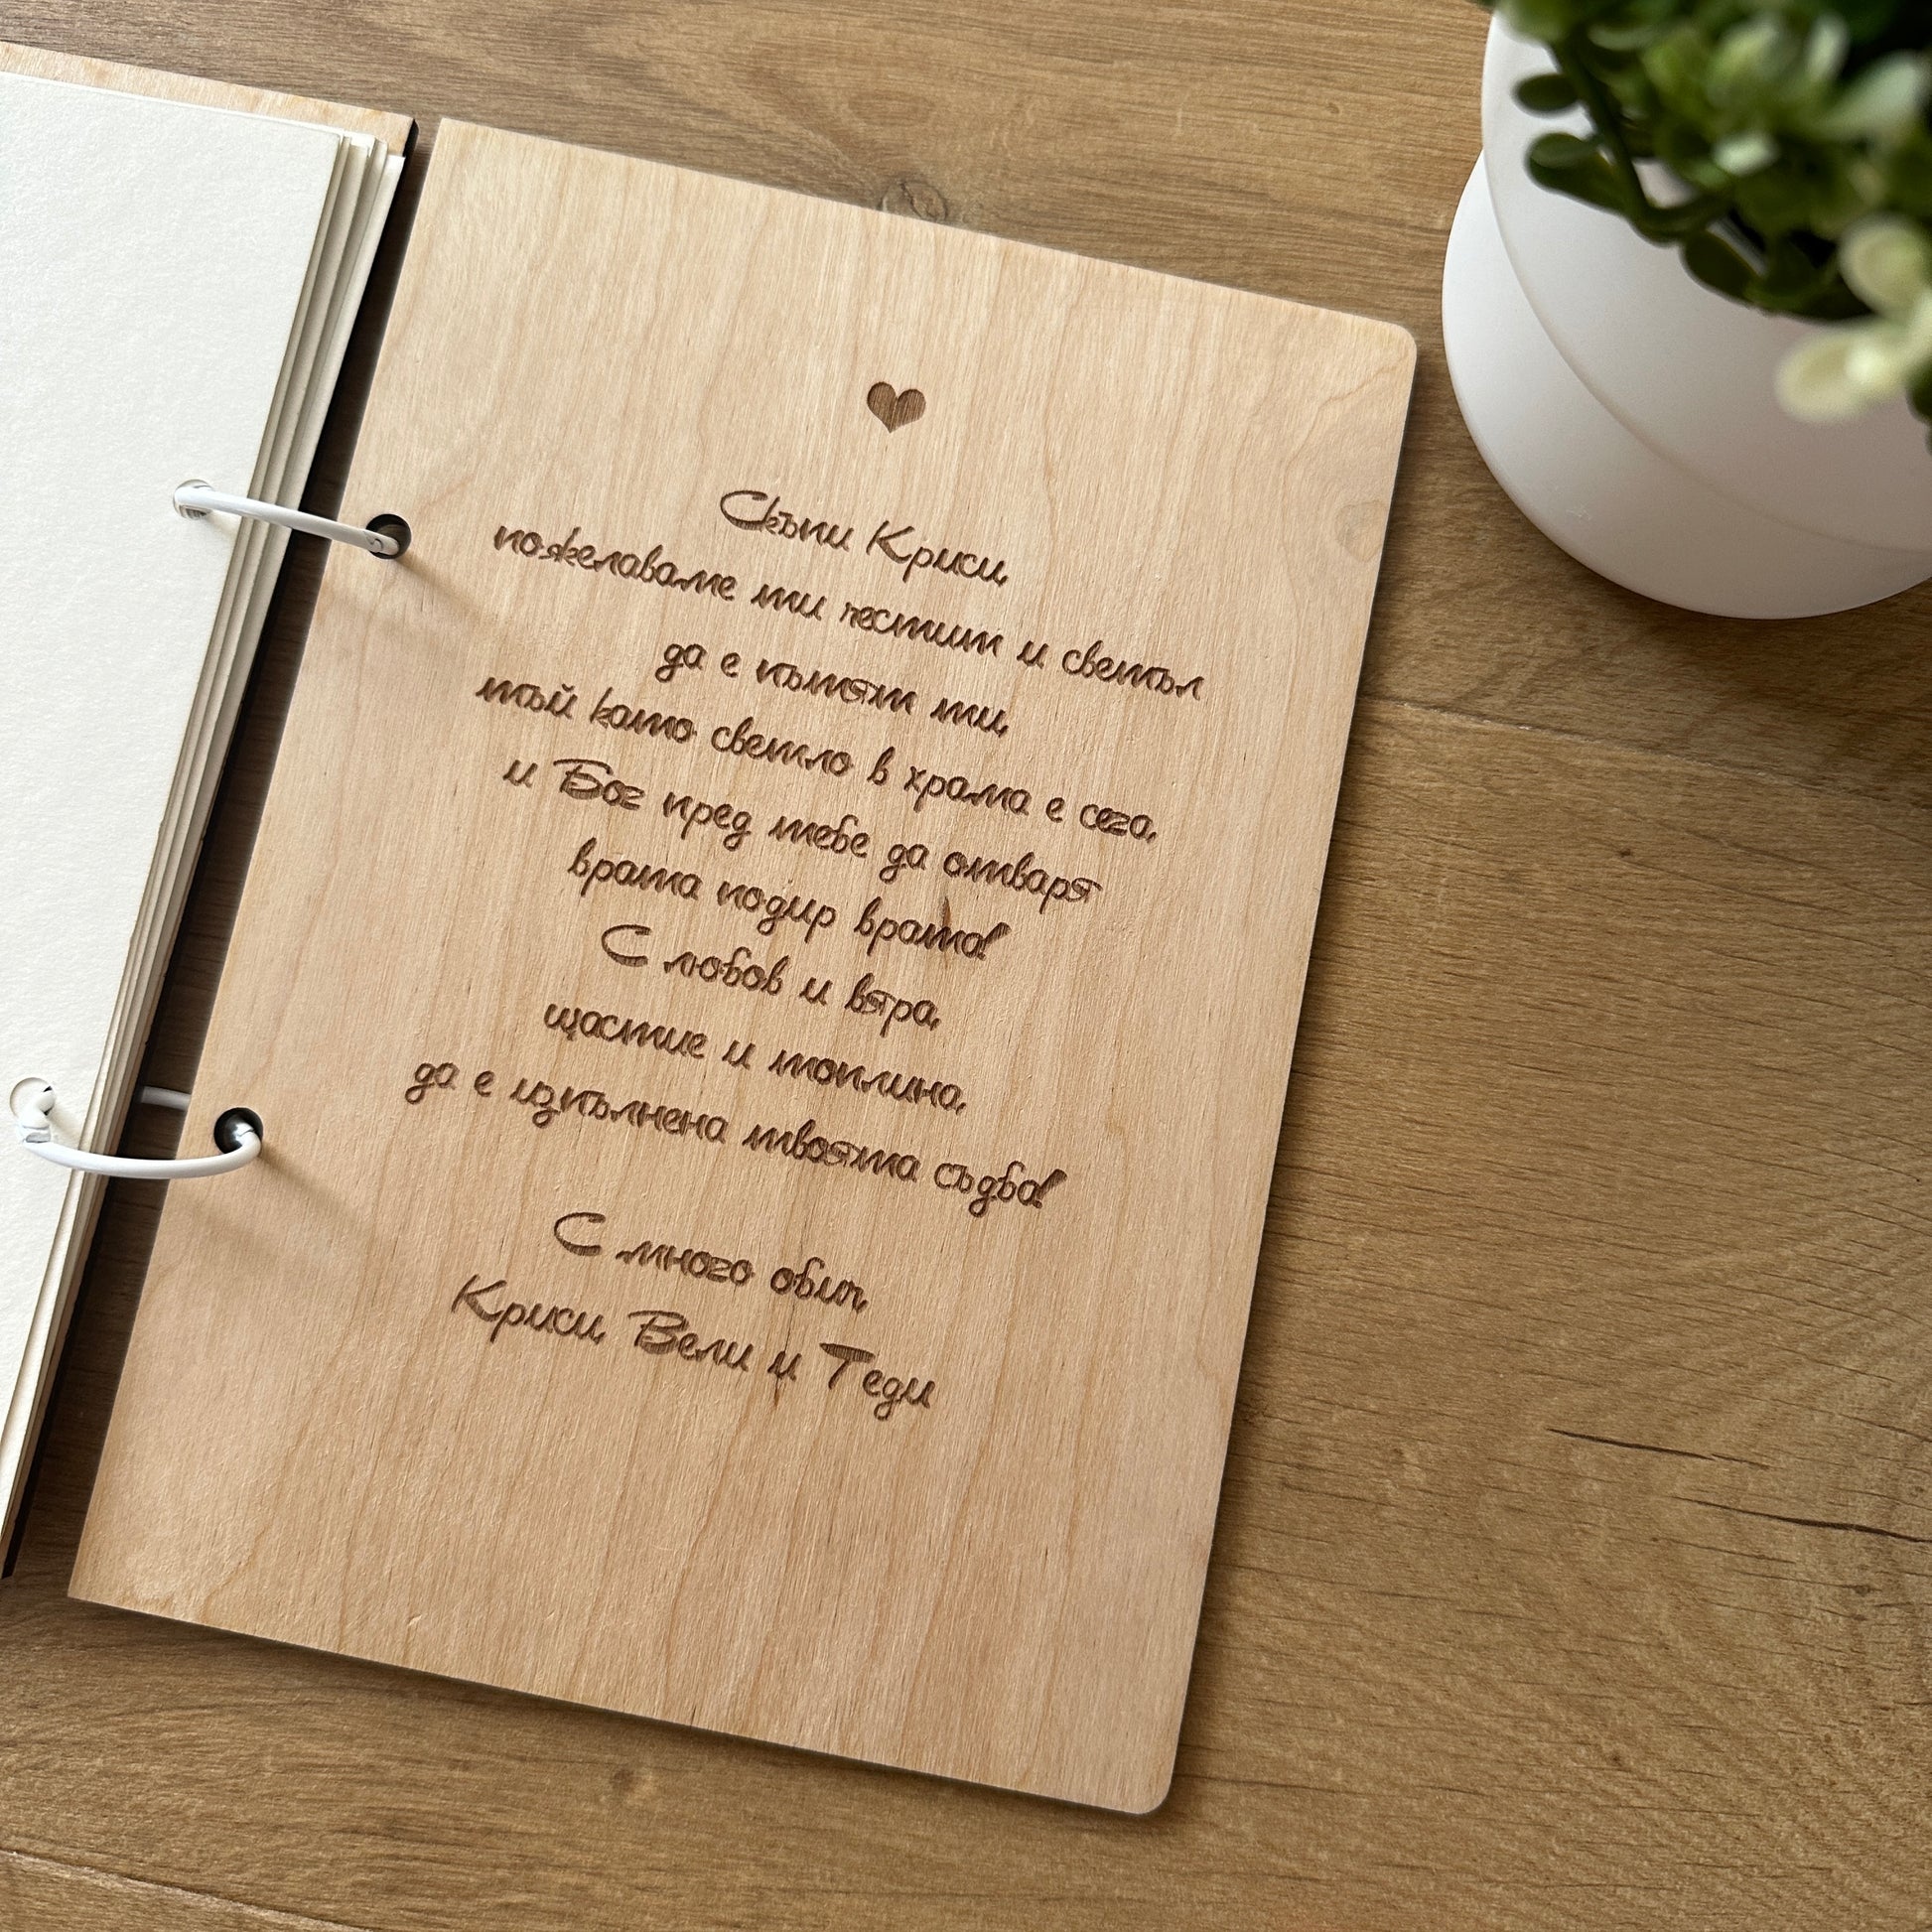 Скъпи Криси,
пожелаваме ти честит и светъл
да е пътят ти,
тъй като светло в храма е сега,
и Бог пред тебе да отваря
врата подир врата!
С любов и вяра,
щастие и топлина,
да е изпълнена твоята съдба!
С много обич,
Криси, Вели и Теди